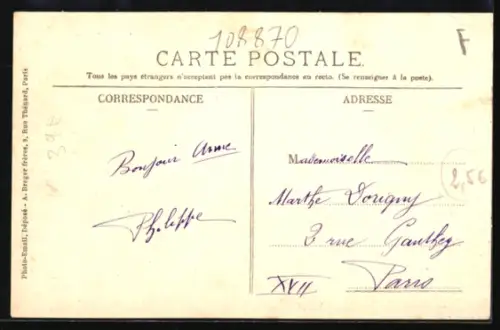 108870
F
CARTE POSTALE
Tous les pays étrangers n'acceptent pas la correspondance au recto. (Se renseigner à la poste).
CORRESPONDANCE
ADRESSE
Photo-Email, Déposé - A. Breger frères, 9, Rue Thénard, Paris
Bonjour Anne
Philippe
Mademoiselle
Marthe Dorigny
3 rue Gauthey
XVII
Paris
2,50